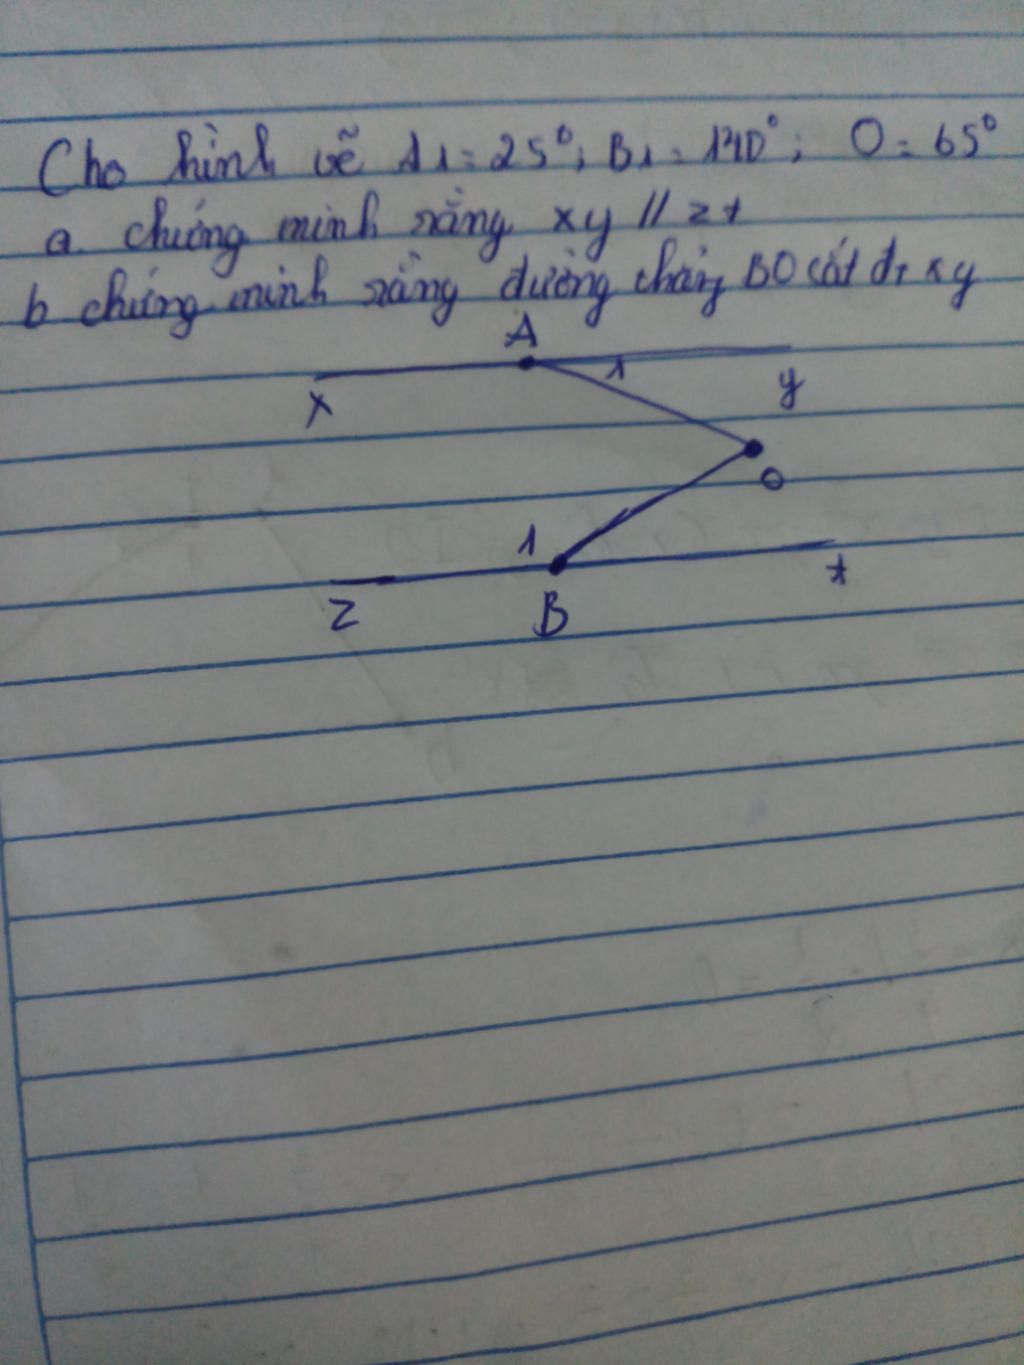 Cho hình vẽ A1 = 25°; B1 = 140°; O = 65°
a. chứng minh rằng xy // zt
b chứng minh rằng đường thẳng BO cắt đt xy
A
1
x
y
O
1
z
B
t